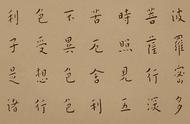 波羅蜜多
菩薩行深
時照見五
苦厄舍利
不異色色
色受想行
利子是諸